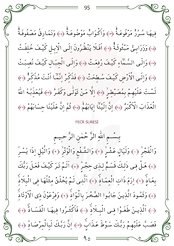 95
فِيهَا سُرُرٌ مَرْفُوعَةٌ ﴿١٣﴾ وَأَكْوَابٌ مَوْضُوعَةٌ ﴿١٤﴾ وَنَمَارِقُ مَصْفُوفَةٌ
﴿١٥﴾ وَزَرَابِيُّ مَبْثُوثَةٌ ﴿١٦﴾ أَفَلَا يَنْظُرُونَ إِلَى الْإِبِلِ كَيْفَ خُلِقَتْ
﴿١٧﴾ وَإِلَى السَّمَاءِ كَيْفَ رُفِعَتْ ﴿١٨﴾ وَإِلَى الْجِبَالِ كَيْفَ نُصِبَتْ
﴿١٩﴾ وَإِلَى الْأَرْضِ كَيْفَ سُطِحَتْ ﴿٢٠﴾ فَذَكِّرْ إِنَّمَا أَنْتَ مُذَكِّرٌ ﴿٢١﴾
لَسْتَ عَلَيْهِمْ بِمُصَيْطِرٍ ﴿٢٢﴾ إِلَّا مَنْ تَوَلَّى وَكَفَرَ ﴿٢٣﴾ فَيُعَذِّبُهُ اللهُ
الْعَذَابَ الْأَكْبَرَ ﴿٢٤﴾ إِنَّ إِلَيْنَا إِيَابَهُمْ ﴿٢٥﴾ ثُمَّ إِنَّ عَلَيْنَا حِسَابَهُمْ ﴿٢٦﴾
FECR SURESİ
بِسْمِ اللهِ الرَّحْمٰنِ الرَّحِيمِ
وَالْفَجْرِ ﴿١﴾ وَلَيَالٍ عَشْرٍ ﴿٢﴾ وَالشَّفْعِ وَالْوَتْرِ ﴿٣﴾ وَاللَّيْلِ إِذَا يَسْرِ
﴿٤﴾ هَلْ فِي ذَلِكَ قَسَمٌ لِذِي حِجْرٍ ﴿٥﴾ أَلَمْ تَرَ كَيْفَ فَعَلَ رَبُّكَ
بِعَادٍ ﴿٦﴾ إِرَمَ ذَاتِ الْعِمَادِ ﴿٧﴾ الَّتِي لَمْ يُخْلَقْ مِثْلُهَا فِي الْبِلَادِ
﴿٨﴾ وَثَمُودَ الَّذِينَ جَابُوا الصَّخْرَ بِالْوَادِ ﴿٩﴾ وَفِرْعَوْنَ ذِي الْأَوْتَادِ
﴿١٠﴾ الَّذِينَ طَغَوْا فِي الْبِلَادِ ﴿١١﴾ فَأَكْثَرُوا فِيهَا الْفَسَادَ ﴿١٢﴾
فَصَبَّ عَلَيْهِمْ رَبُّكَ سَوْطَ عَذَابٍ ﴿١٣﴾ إِنَّ رَبَّكَ لَبِالْمِرْصَادِ ﴿١٤﴾